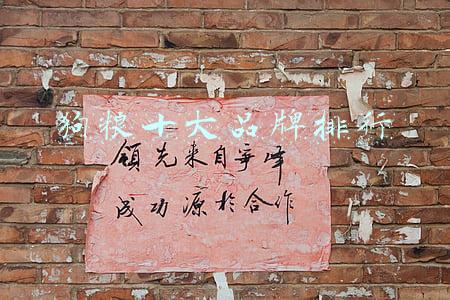 狗粮十大品牌排行
领先来自争峰
成功源於合作